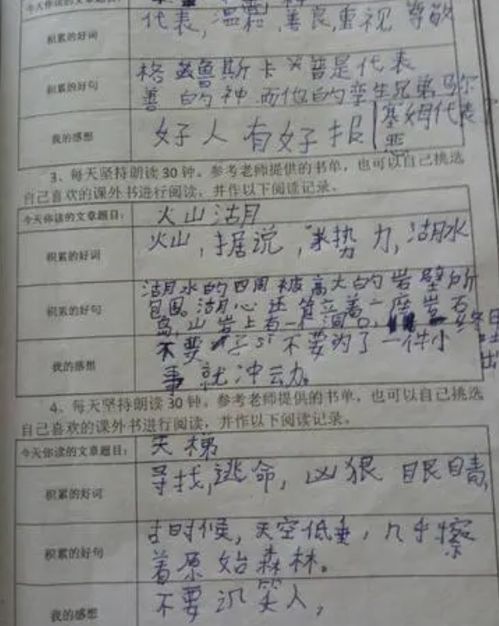 今天你读的文章题目：
积累的好词 代表，温和，善良，重视 尊敬
积累的好句 格鲁斯卡 普是代表
善 的神 而他的孪生兄弟马尔
塞姆代表
恶
我的感想 好人有好报
3、每天坚持朗读30钟。参考老师提供的书单，也可以自己挑选
自己喜欢的课外书进行阅读，并作以下阅读记录。
今天你读的文章题目： 火山湖
积累的好词 火山，据说，势力，湖水
积累的好句 湖水的四周被高大的岩壁所
包围。湖心还耸立着一座岩石
岛，山岩上有一个洞口，
我的感想 不要 不要为了一件小
事 就冲动。
4、每天坚持朗读30钟。参考老师提供的书单，也可以自己挑选
自己喜欢的课外书进行阅读，并作以下阅读记录。
今天你读的文章题目： 天梯
积累的好词 寻找，逃命，凶狠 眼睛
积累的好句 古时候，天空低垂，几乎擦
着原始森林。
我的感想 不要讥笑人，